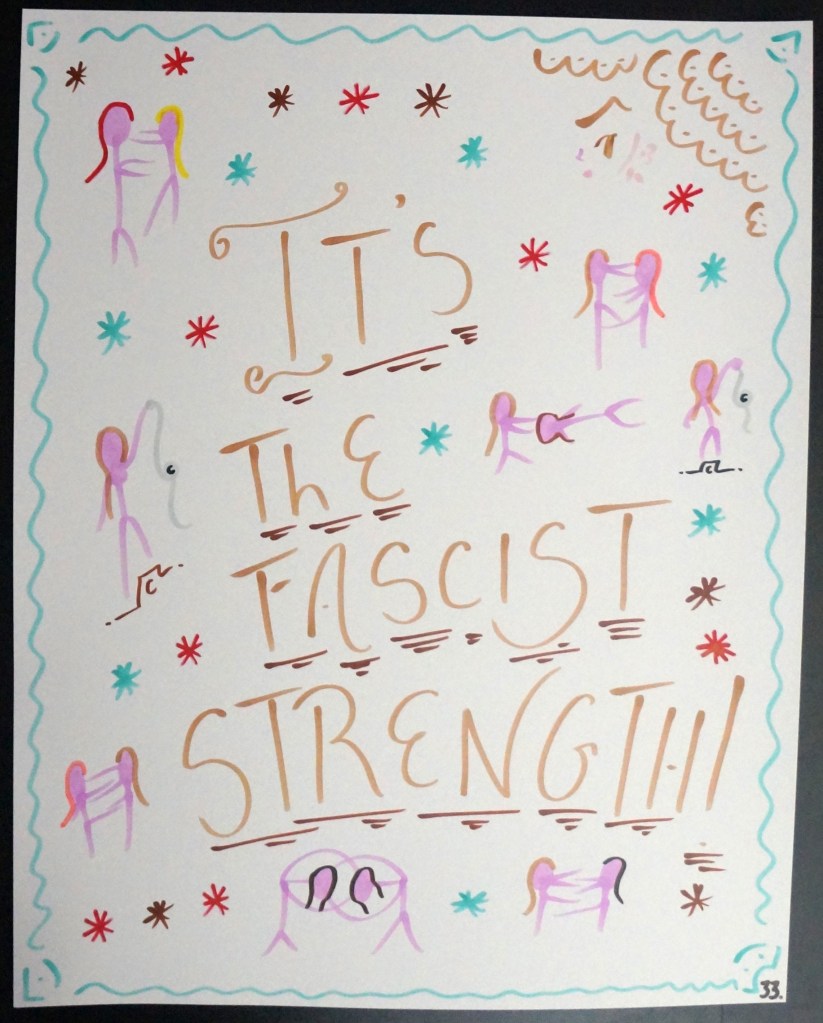 IT'S
ThE
FASCIST
STRENGTH!
33.